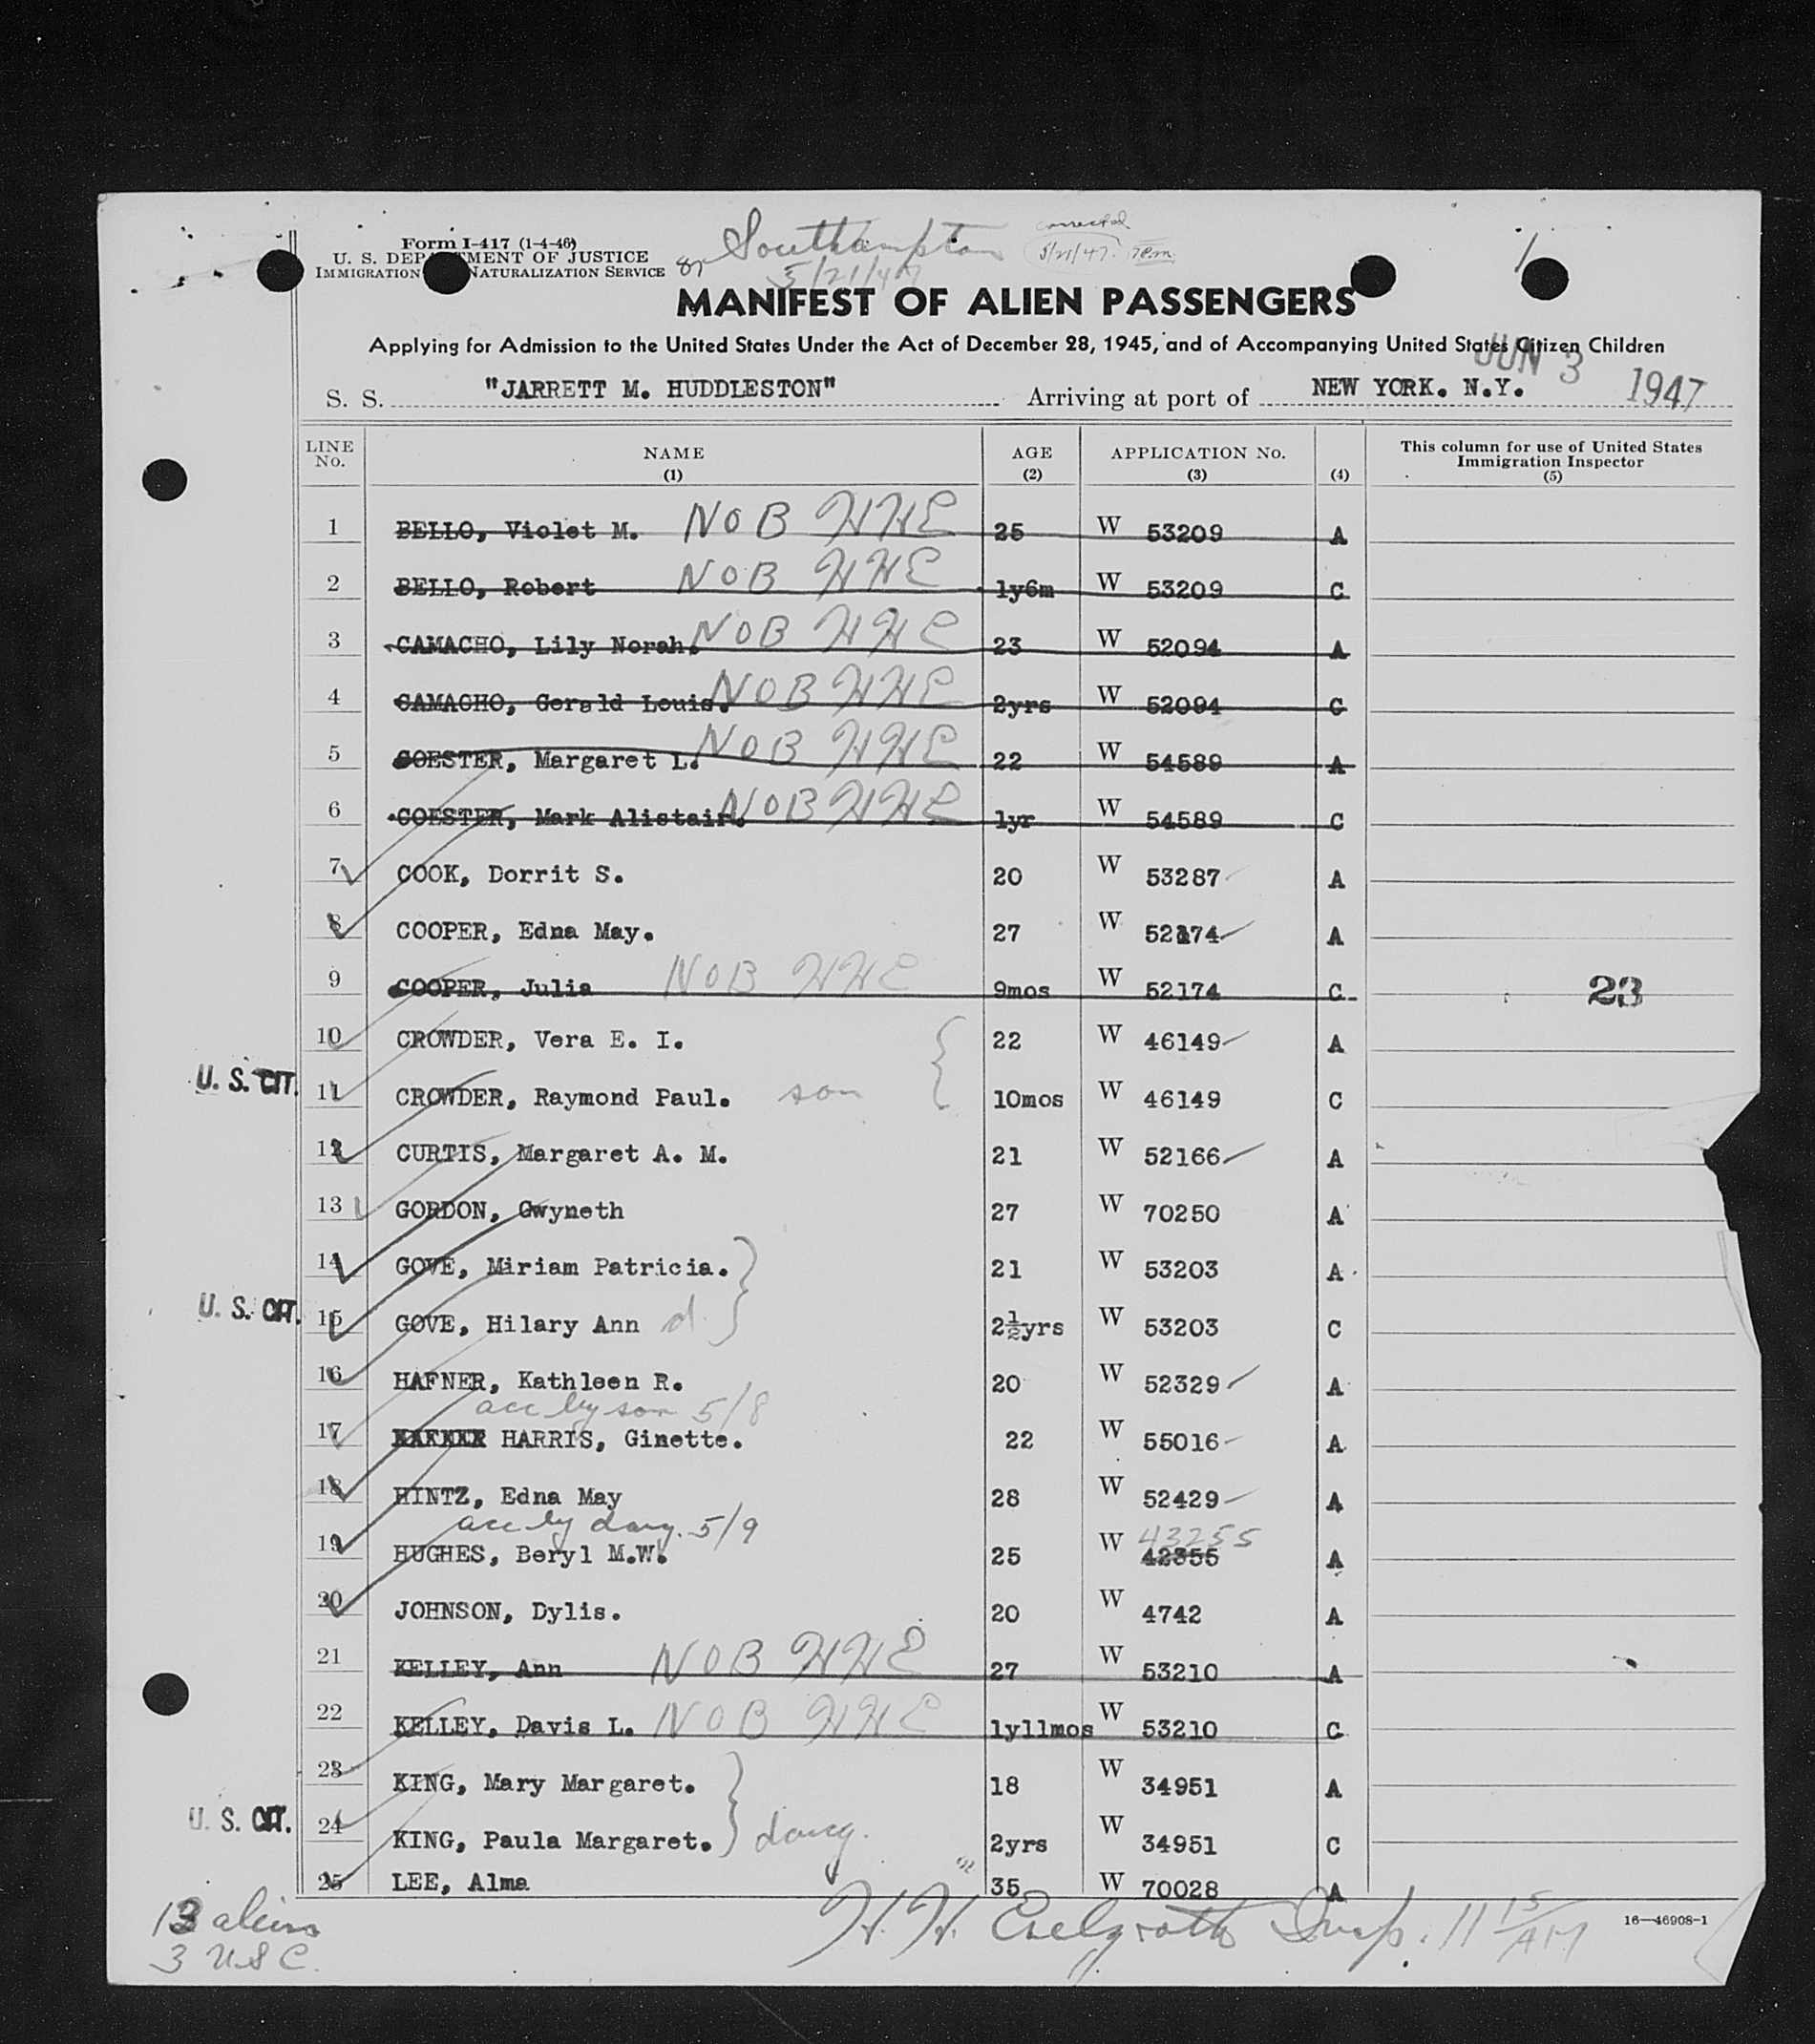 Form I-417 (1-4-46)
U. S. DEPARTMENT OF JUSTICE
IMMIGRATION NATURALIZATION SERVICE
87 Southampton
5/21/47
corrected
5/21/47. 7pm
MANIFEST OF ALIEN PASSENGERS
Applying for Admission to the United States Under the Act of December 28, 1945, and of Accompanying United States Citizen Children
JUN 3 1947
S. S. "JARRETT M. HUDDLESTON" Arriving at port of NEW YORK. N.Y.
LINE No. NAME (1) AGE (2) APPLICATION No. (3) (4) This column for use of United States Immigration Inspector (5)
1 BELLO, Violet M. NOB HHE 25 W 53209 A
2 BELLO, Robert NOB HHE 1y6m W 53209 C
3 CAMACHO, Lily Norah. NOB HHE 23 W 52094 A
4 CAMACHO, Gerald Louis. NOB HHE 2yrs W 52094 C
5 COESTER, Margaret L. NOB HHE 22 W 54589 A
6 COESTER, Mark Alistair. NOB HHE 1yr W 54589 C
7 COOK, Dorrit S. 20 W 53287 A
8 COOPER, Edna May. 27 W 52174 A
9 COOPER, Julia NOB HHE 9mos W 52174 C 23
10 CROWDER, Vera E. I. 22 W 46149 A
U. S. CIT. 11 CROWDER, Raymond Paul. son 10mos W 46149 C
12 CURTIS, Margaret A. M. 21 W 52166 A
13 GORDON, Gwyneth 27 W 70250 A
14 GOVE, Miriam Patricia. 21 W 53203 A
U. S. CIT. 15 GOVE, Hilary Ann d. 2½yrs W 53203 C
16 HAFNER, Kathleen R. 20 W 52329 A
acc by son 5/8
17 HARRIS, Ginette. 22 W 55016 A
18 HINTZ, Edna May 28 W 52429 A
acc by daug. 5/9 43255
19 HUGHES, Beryl M.W. 25 W 42355 A
20 JOHNSON, Dylis. 20 W 4742 A
21 KELLEY, Ann NOB HHE 27 W 53210 A
22 KELLEY, Davis L. NOB HHE 1y11mos W 53210 C
23 KING, Mary Margaret. 18 W 34951 A
U. S. CIT. 24 KING, Paula Margaret. daug. 2yrs W 34951 C
25 LEE, Alma 35 W 70028 A
13 aliens
3 USC.
H. H. Insp. 11 15/AM
16—46908-1